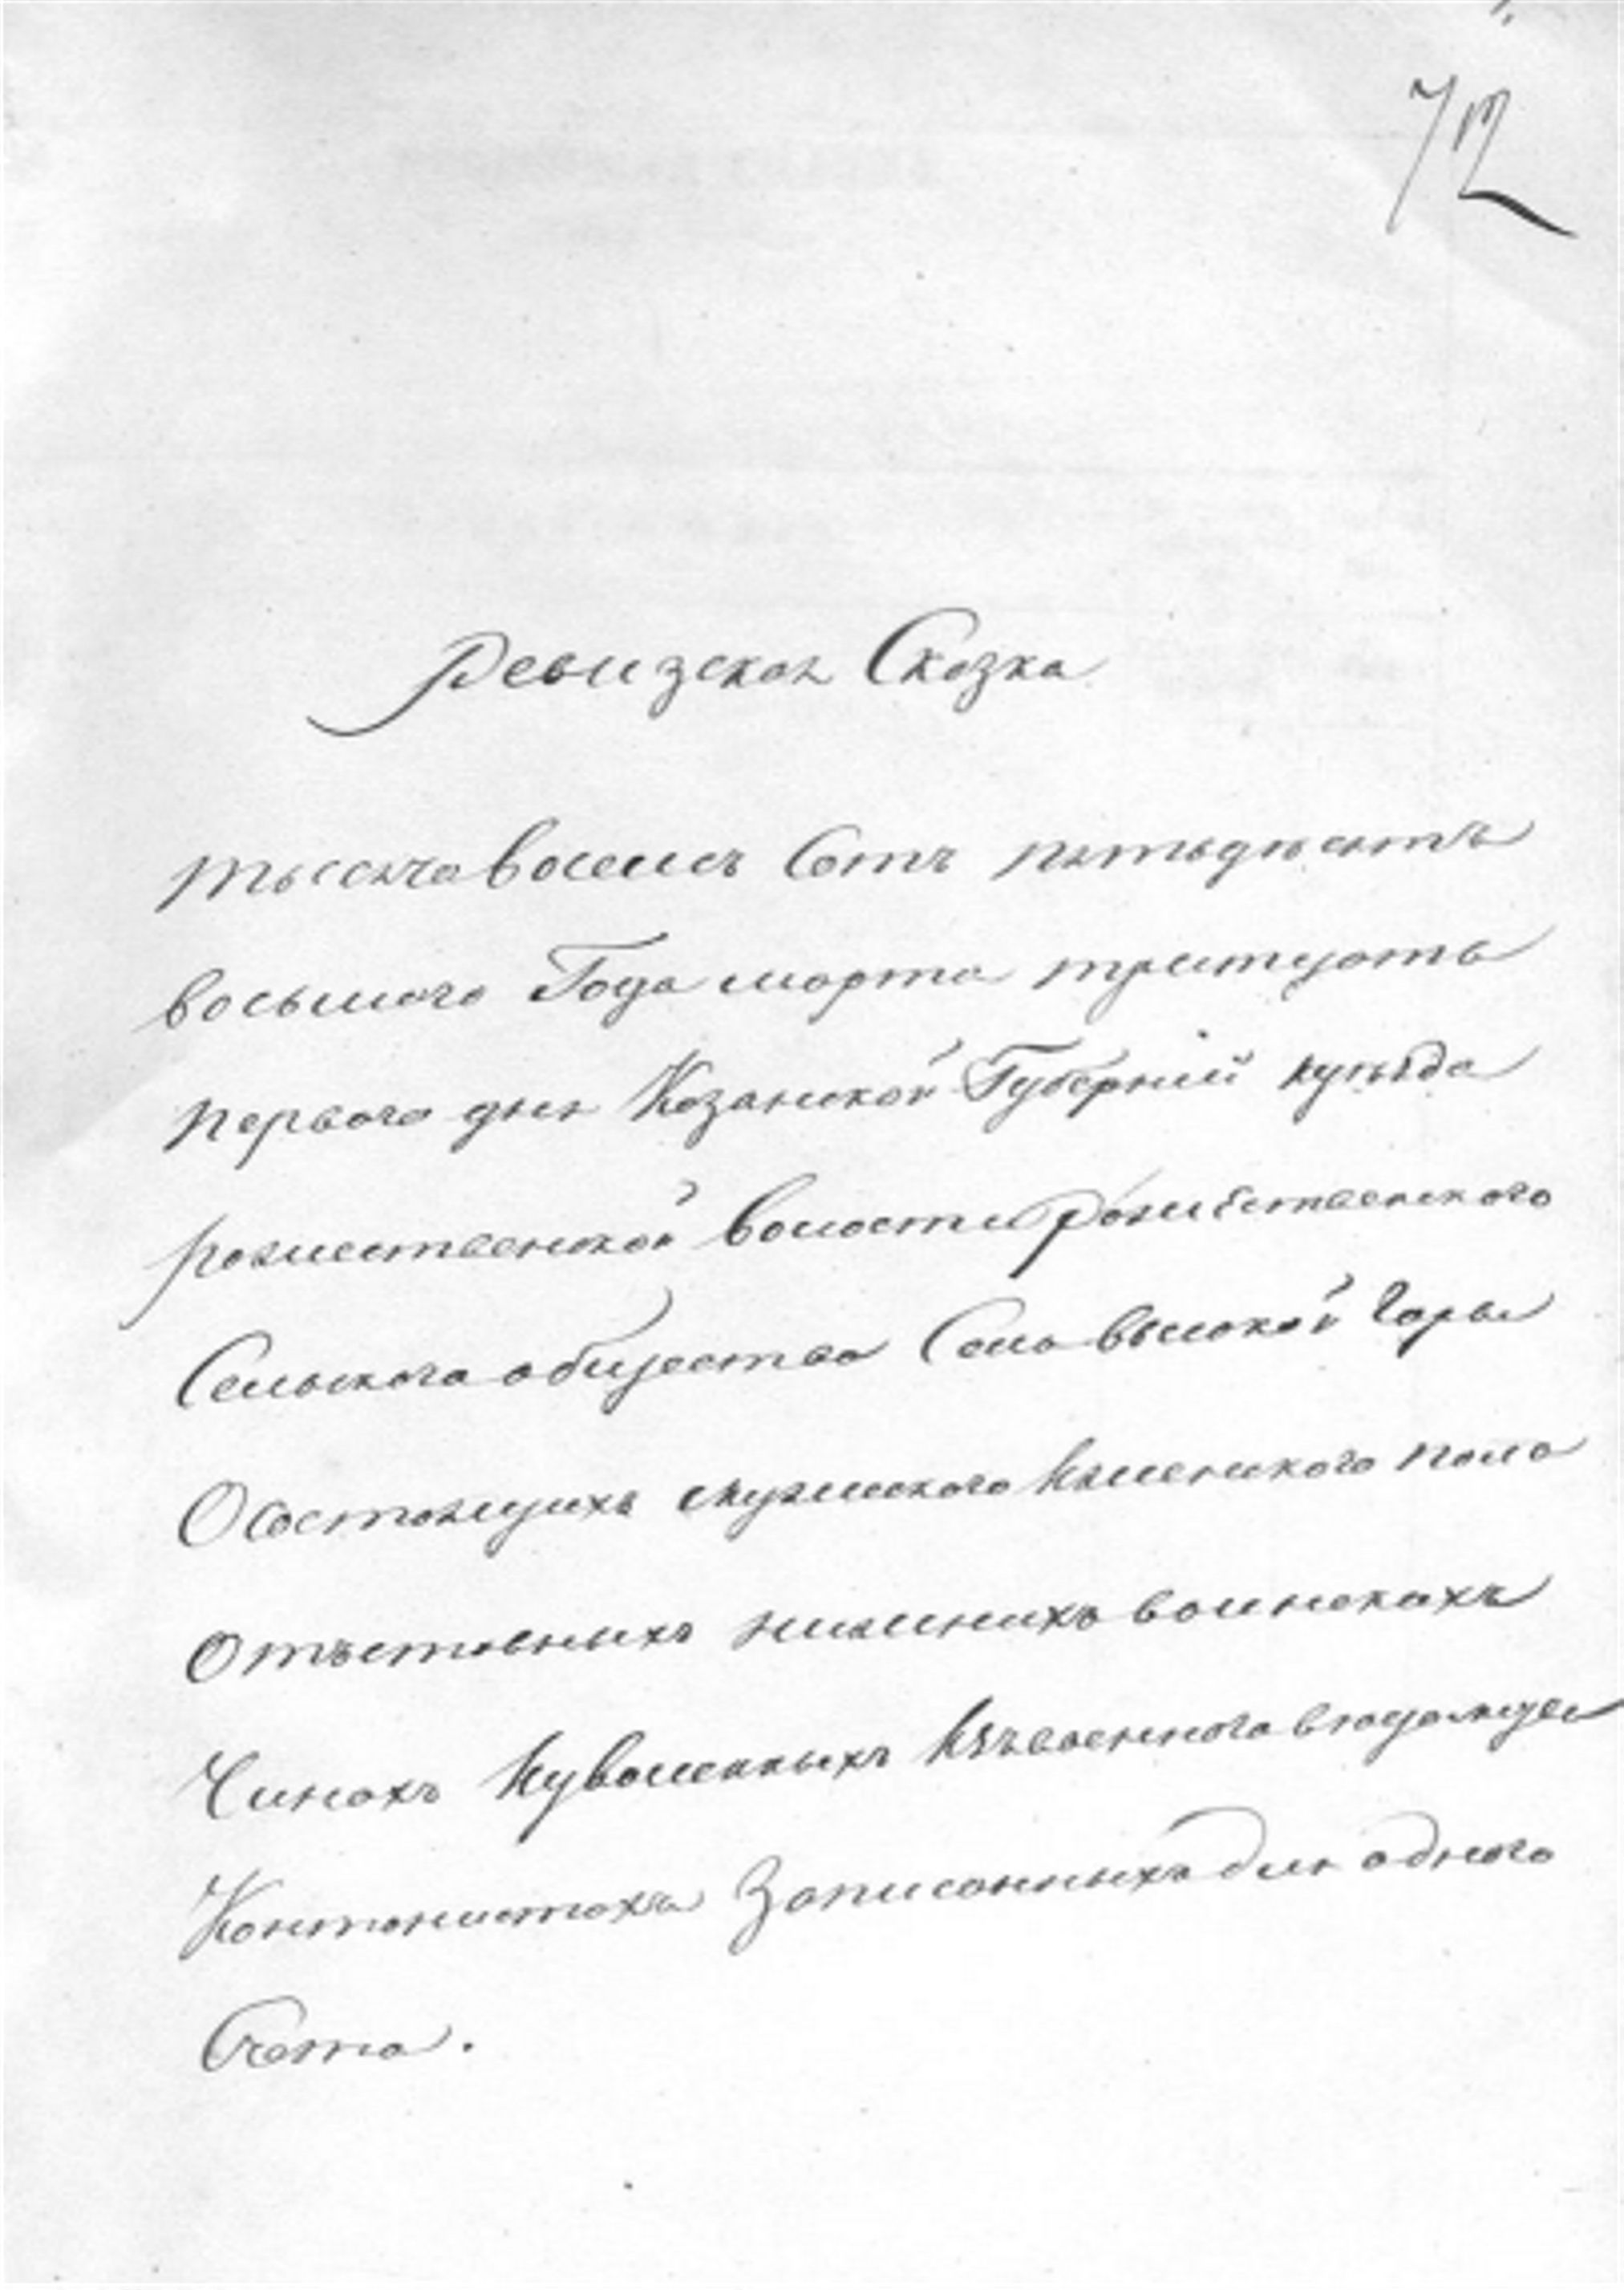 72
Ревизская Сказка
тысяча восемь Сотъ пятьдесятъ
восьмого Года марта тритцать
первого дня Казанской Губерніи иуѣзда
рожественской волости рожественского
Сельского общества Села высокой Горы
Осостоящихъ мужиского иженского пола
Отъставныхъ нижнихъ воинскихъ
Чинахъ иуволенныхъ изъвоенного
Контонистахъ Записанныхъ для одного
Счета.